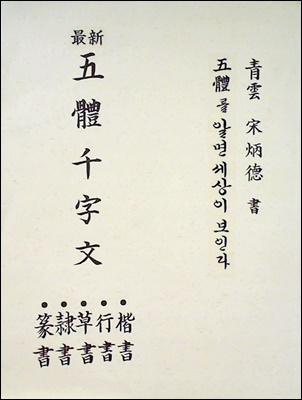 青雲 宋炳德 書
五體를 알면 세상이 보인다
最新
五體千字文
•楷書
•行書
•草書
•隸書
•篆書